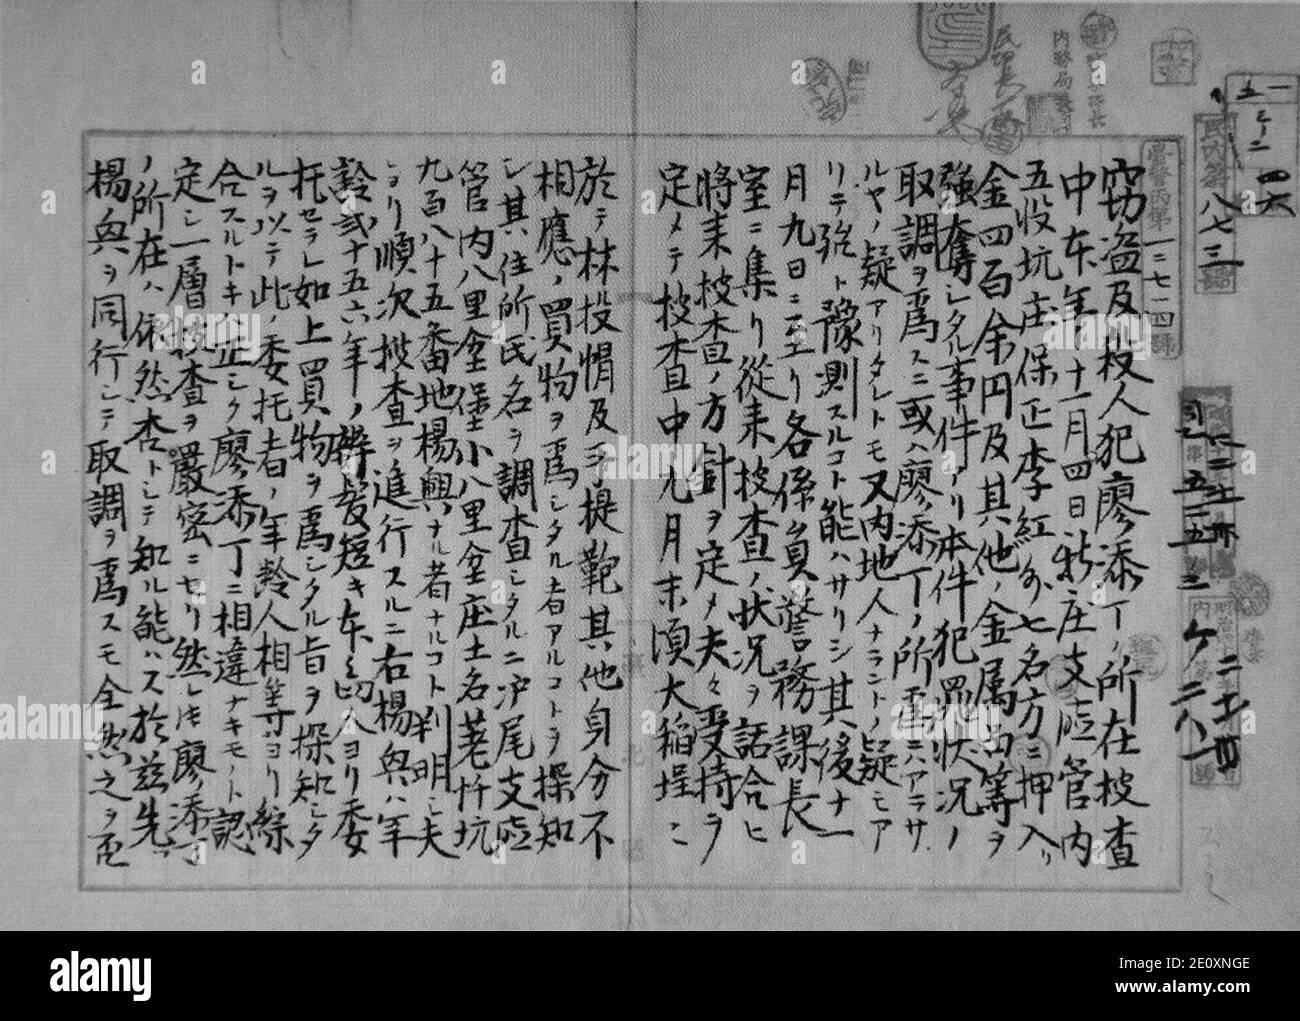 窃盗及殺人犯廖添丁ノ所在捜査
中本年ノ十一月四日新庄支庁管内
五股坑庄保正李紅外七名方ニ押入リ
金四百余円及其他ノ金属由等ヲ
強奪シタル事件アリ本件犯罪状況ノ
取調ヲ為スニ或ハ廖添丁ノ所為ニハアラサ
ルヤノ疑アリタレトモ又内地人ナラントノ疑モア
リテ強ト豫測スルコト能ハサリシ其後十一
月九日ニ至リ各係員警務課長
室ニ集リ従来捜査ノ状況ヲ話合ヒ
将来捜査ノ方針ヲ定メ夫々受持ヲ
定メテ捜査中九月末頃大稲埕ニ
於テ林投帽及ヒ提鞄其他身分不
相應ノ買物ヲ為シタル者アルコトヲ探知
シ其住所氏名ヲ調査シタルニ滬尾支庁
管内八里坌堡小八里坌庄土名荖阡坑
九百八十五番地楊興ナル者ナルコト判明シ夫
ヨリ順次捜査ヲ進行スルニ右楊興ハ年
齢弐十五六年ノ辮髪短キ本島人ヨリ委
托セラレ如上買物ヲ為シタル旨ヲ探知シタ
ルヲ以テ此ノ委托者ノ年齢人相等ヨリ綜
合スルトキハ正シク廖添丁ニ相違ナキモノト認
定シ一層捜査ヲ嚴密ニセリ然レ𪜈廖添丁
ノ所在ハ依然杳トシテ知ル能ハス於茲先ツ
楊興ヲ同行シテ取調ヲ為スモ全然之ヲ否
一二七一四號
八七三
内務局長
alamy
Image ID: 2E0XNGE
www.alamy.com